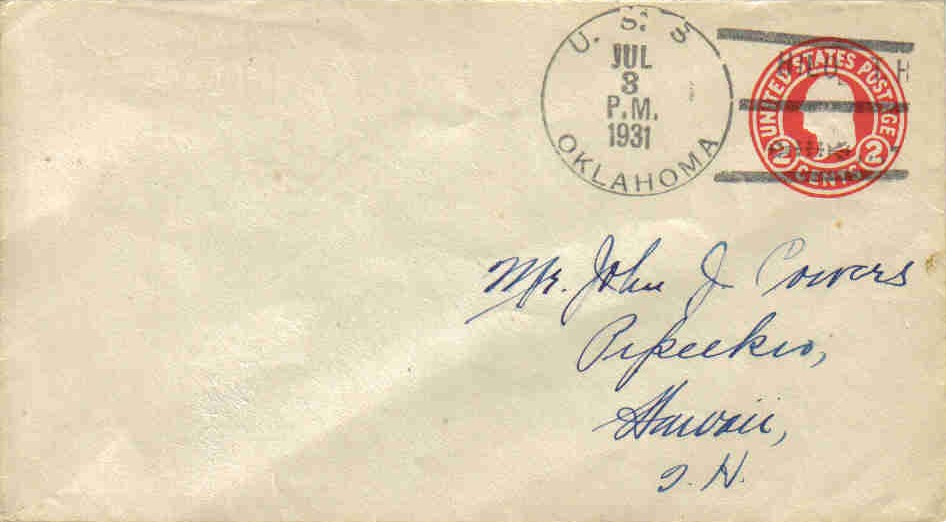 U. S. S
JUL
3
P.M.
1931
OKLAHOMA
UNITED STATES POSTAGE
2 CENTS 2
Mr. John J Cowers
Pepeekeo,
Hawaii,
T. H.